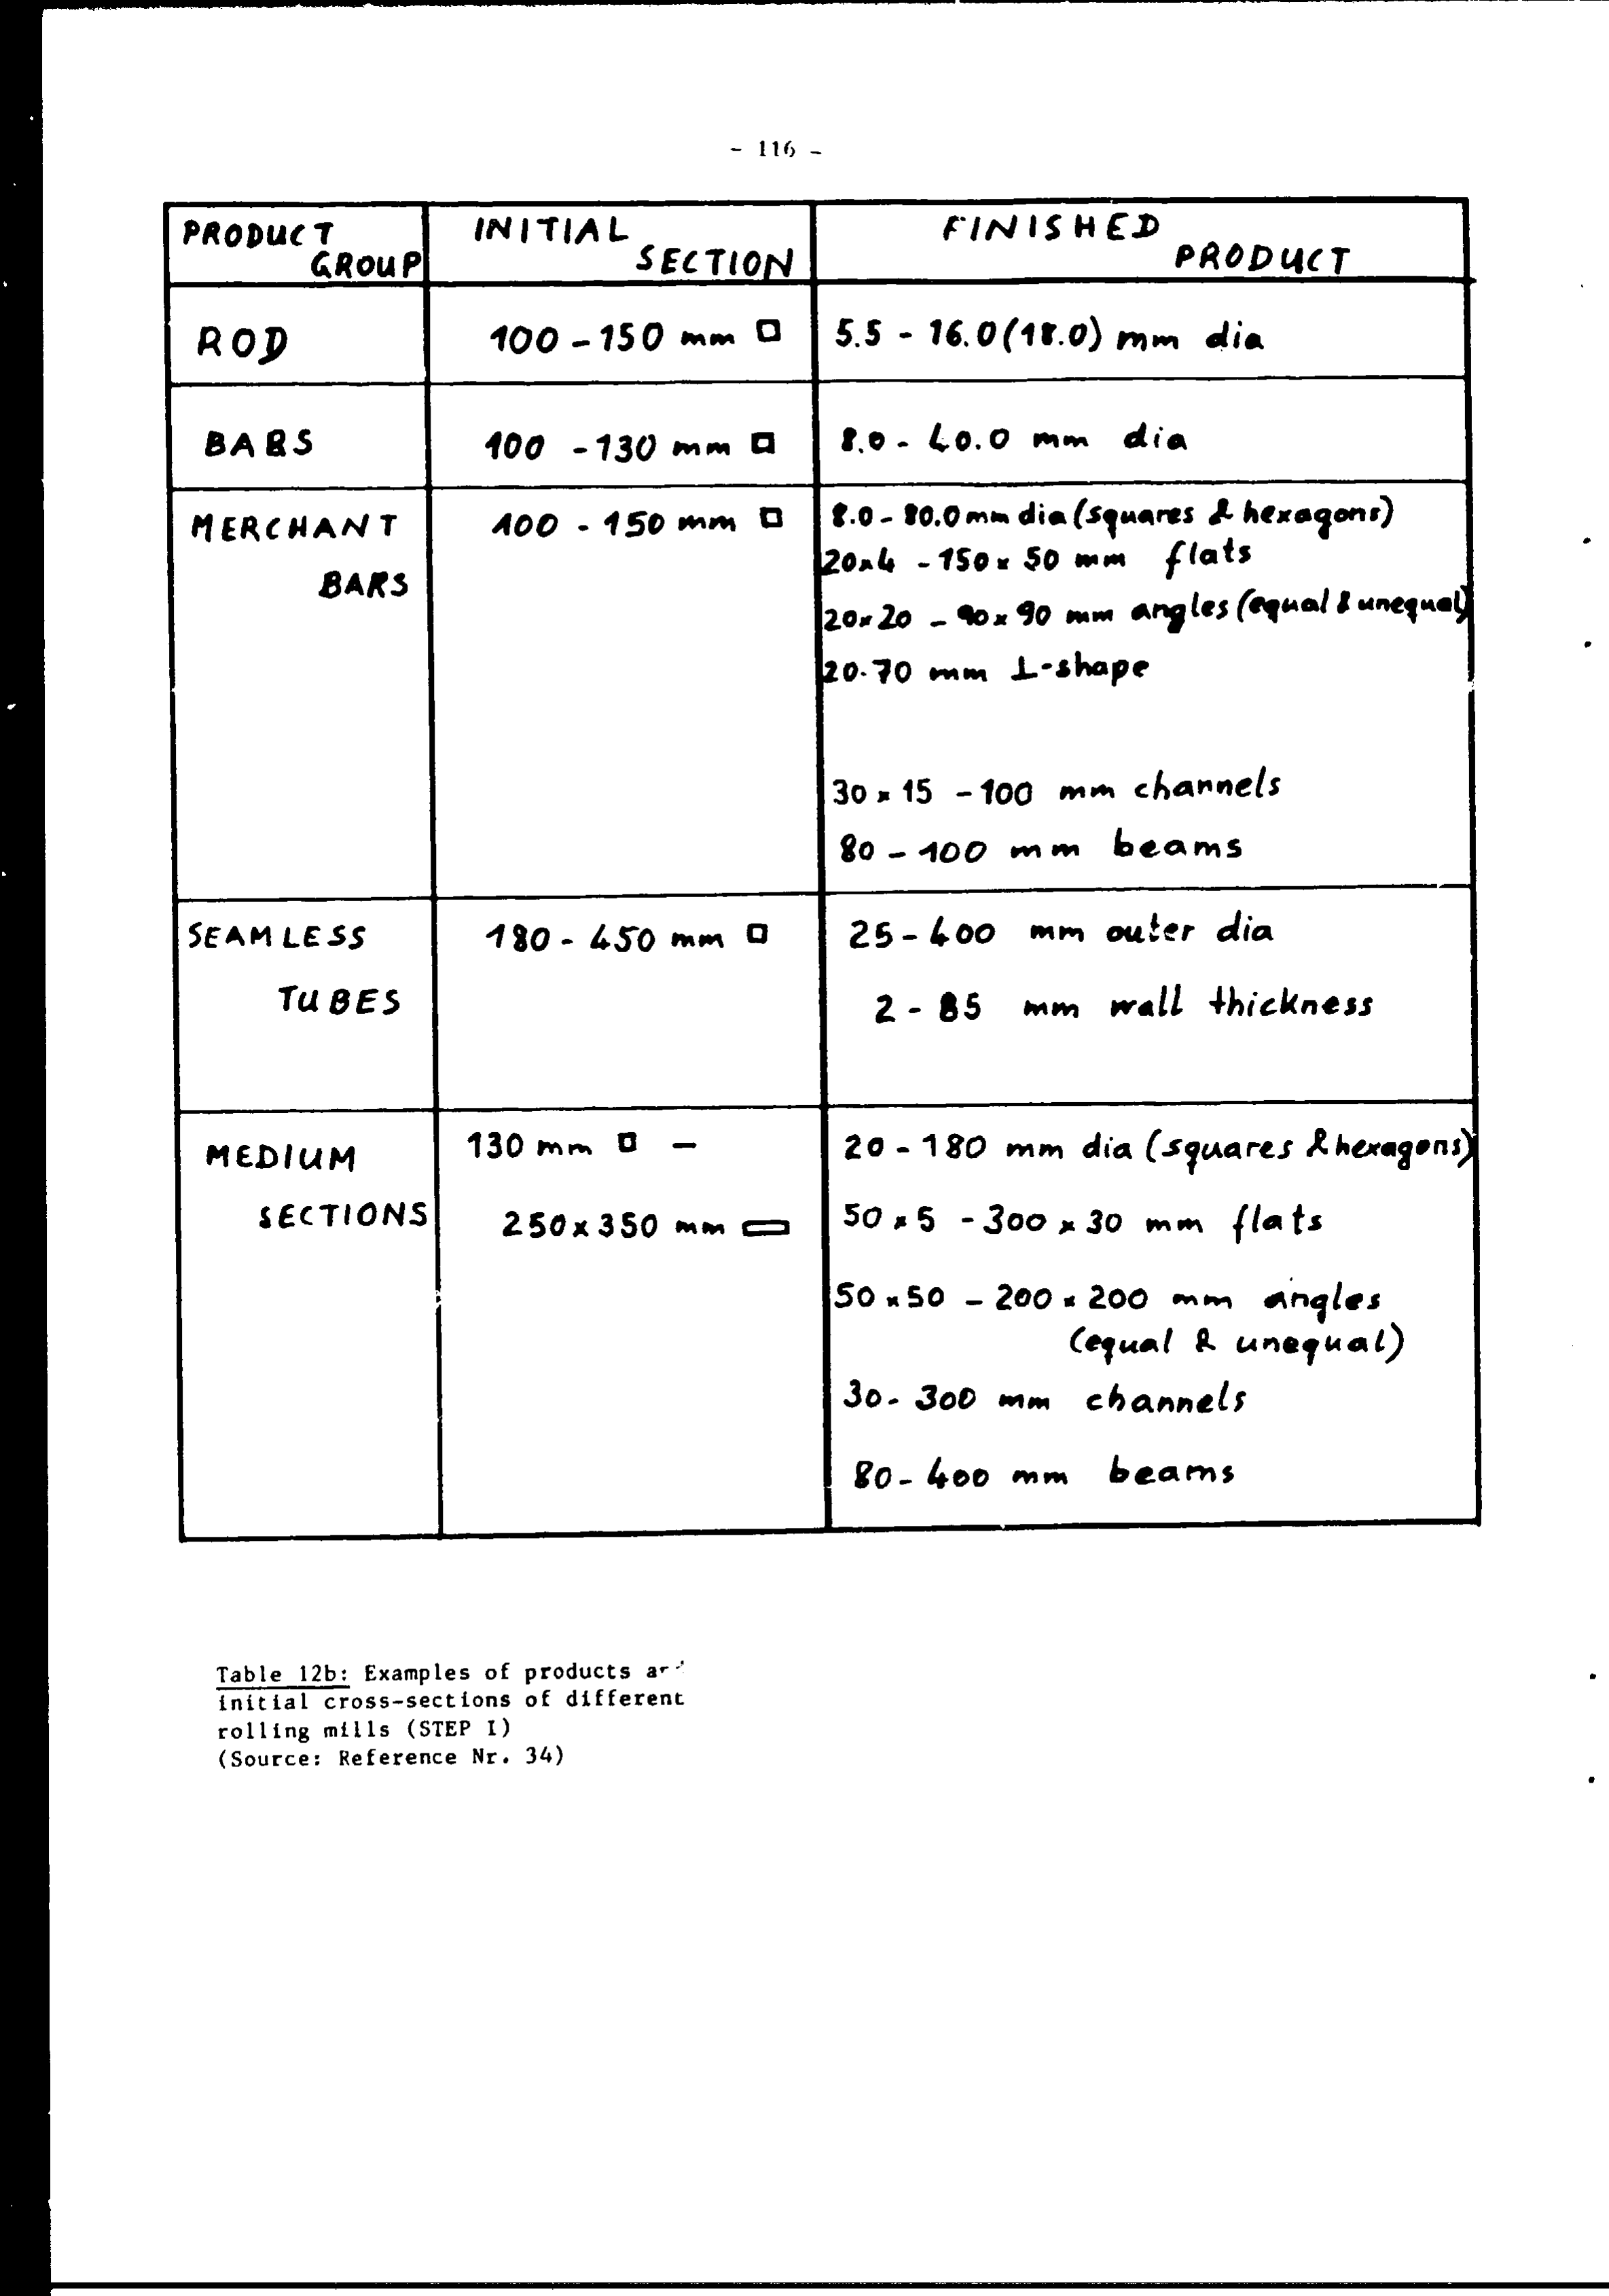 - 116 -
PRODUCT GROUP
INITIAL SECTION
FINISHED PRODUCT
ROD
100 - 150 mm □
5.5 - 16.0 (18.0) mm dia
BARS
100 - 130 mm □
8.0 - 40.0 mm dia
MERCHANT BARS
100 - 150 mm □
8.0 - 80.0 mm dia (squares & hexagons)
20x4 - 150x50 mm flats
20x20 - 90x90 mm angles (equal & unequal)
20-70 mm ⊥-shape
30x15 - 100 mm channels
80 - 100 mm beams
SEAMLESS TUBES
180 - 450 mm □
25 - 400 mm outer dia
2 - 85 mm wall thickness
MEDIUM SECTIONS
130 mm □ -
250x350 mm ▭
20 - 180 mm dia (squares & hexagons)
50x5 - 300x30 mm flats
50x50 - 200x200 mm angles
(equal & unequal)
30 - 300 mm channels
80 - 400 mm beams
Table 12b: Examples of products and
initial cross-sections of different
rolling mills (STEP I)
(Source: Reference Nr. 34)